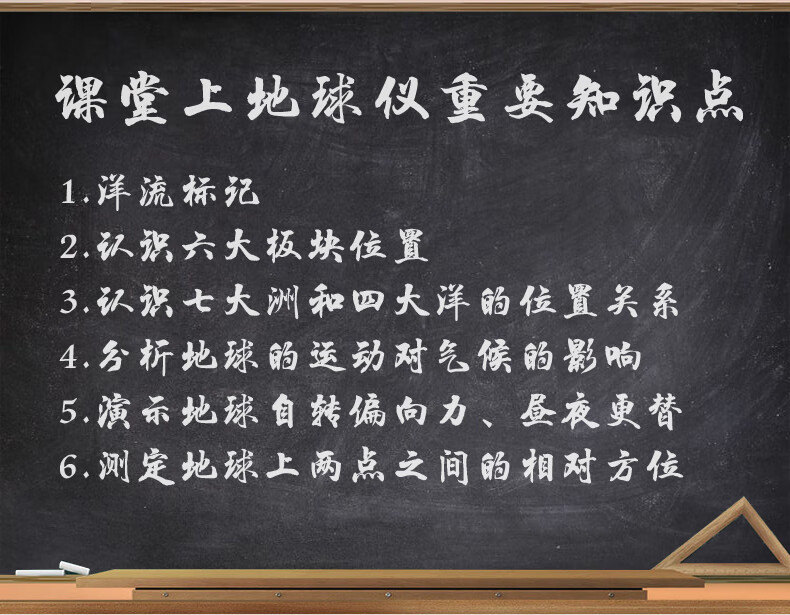 课堂上地球仪重要知识点
1.洋流标记
2.认识六大板块位置
3.认识七大洲和四大洋的位置关系
4.分析地球的运动对气候的影响
5.演示地球自转偏向力、昼夜更替
6.测定地球上两点之间的相对方位